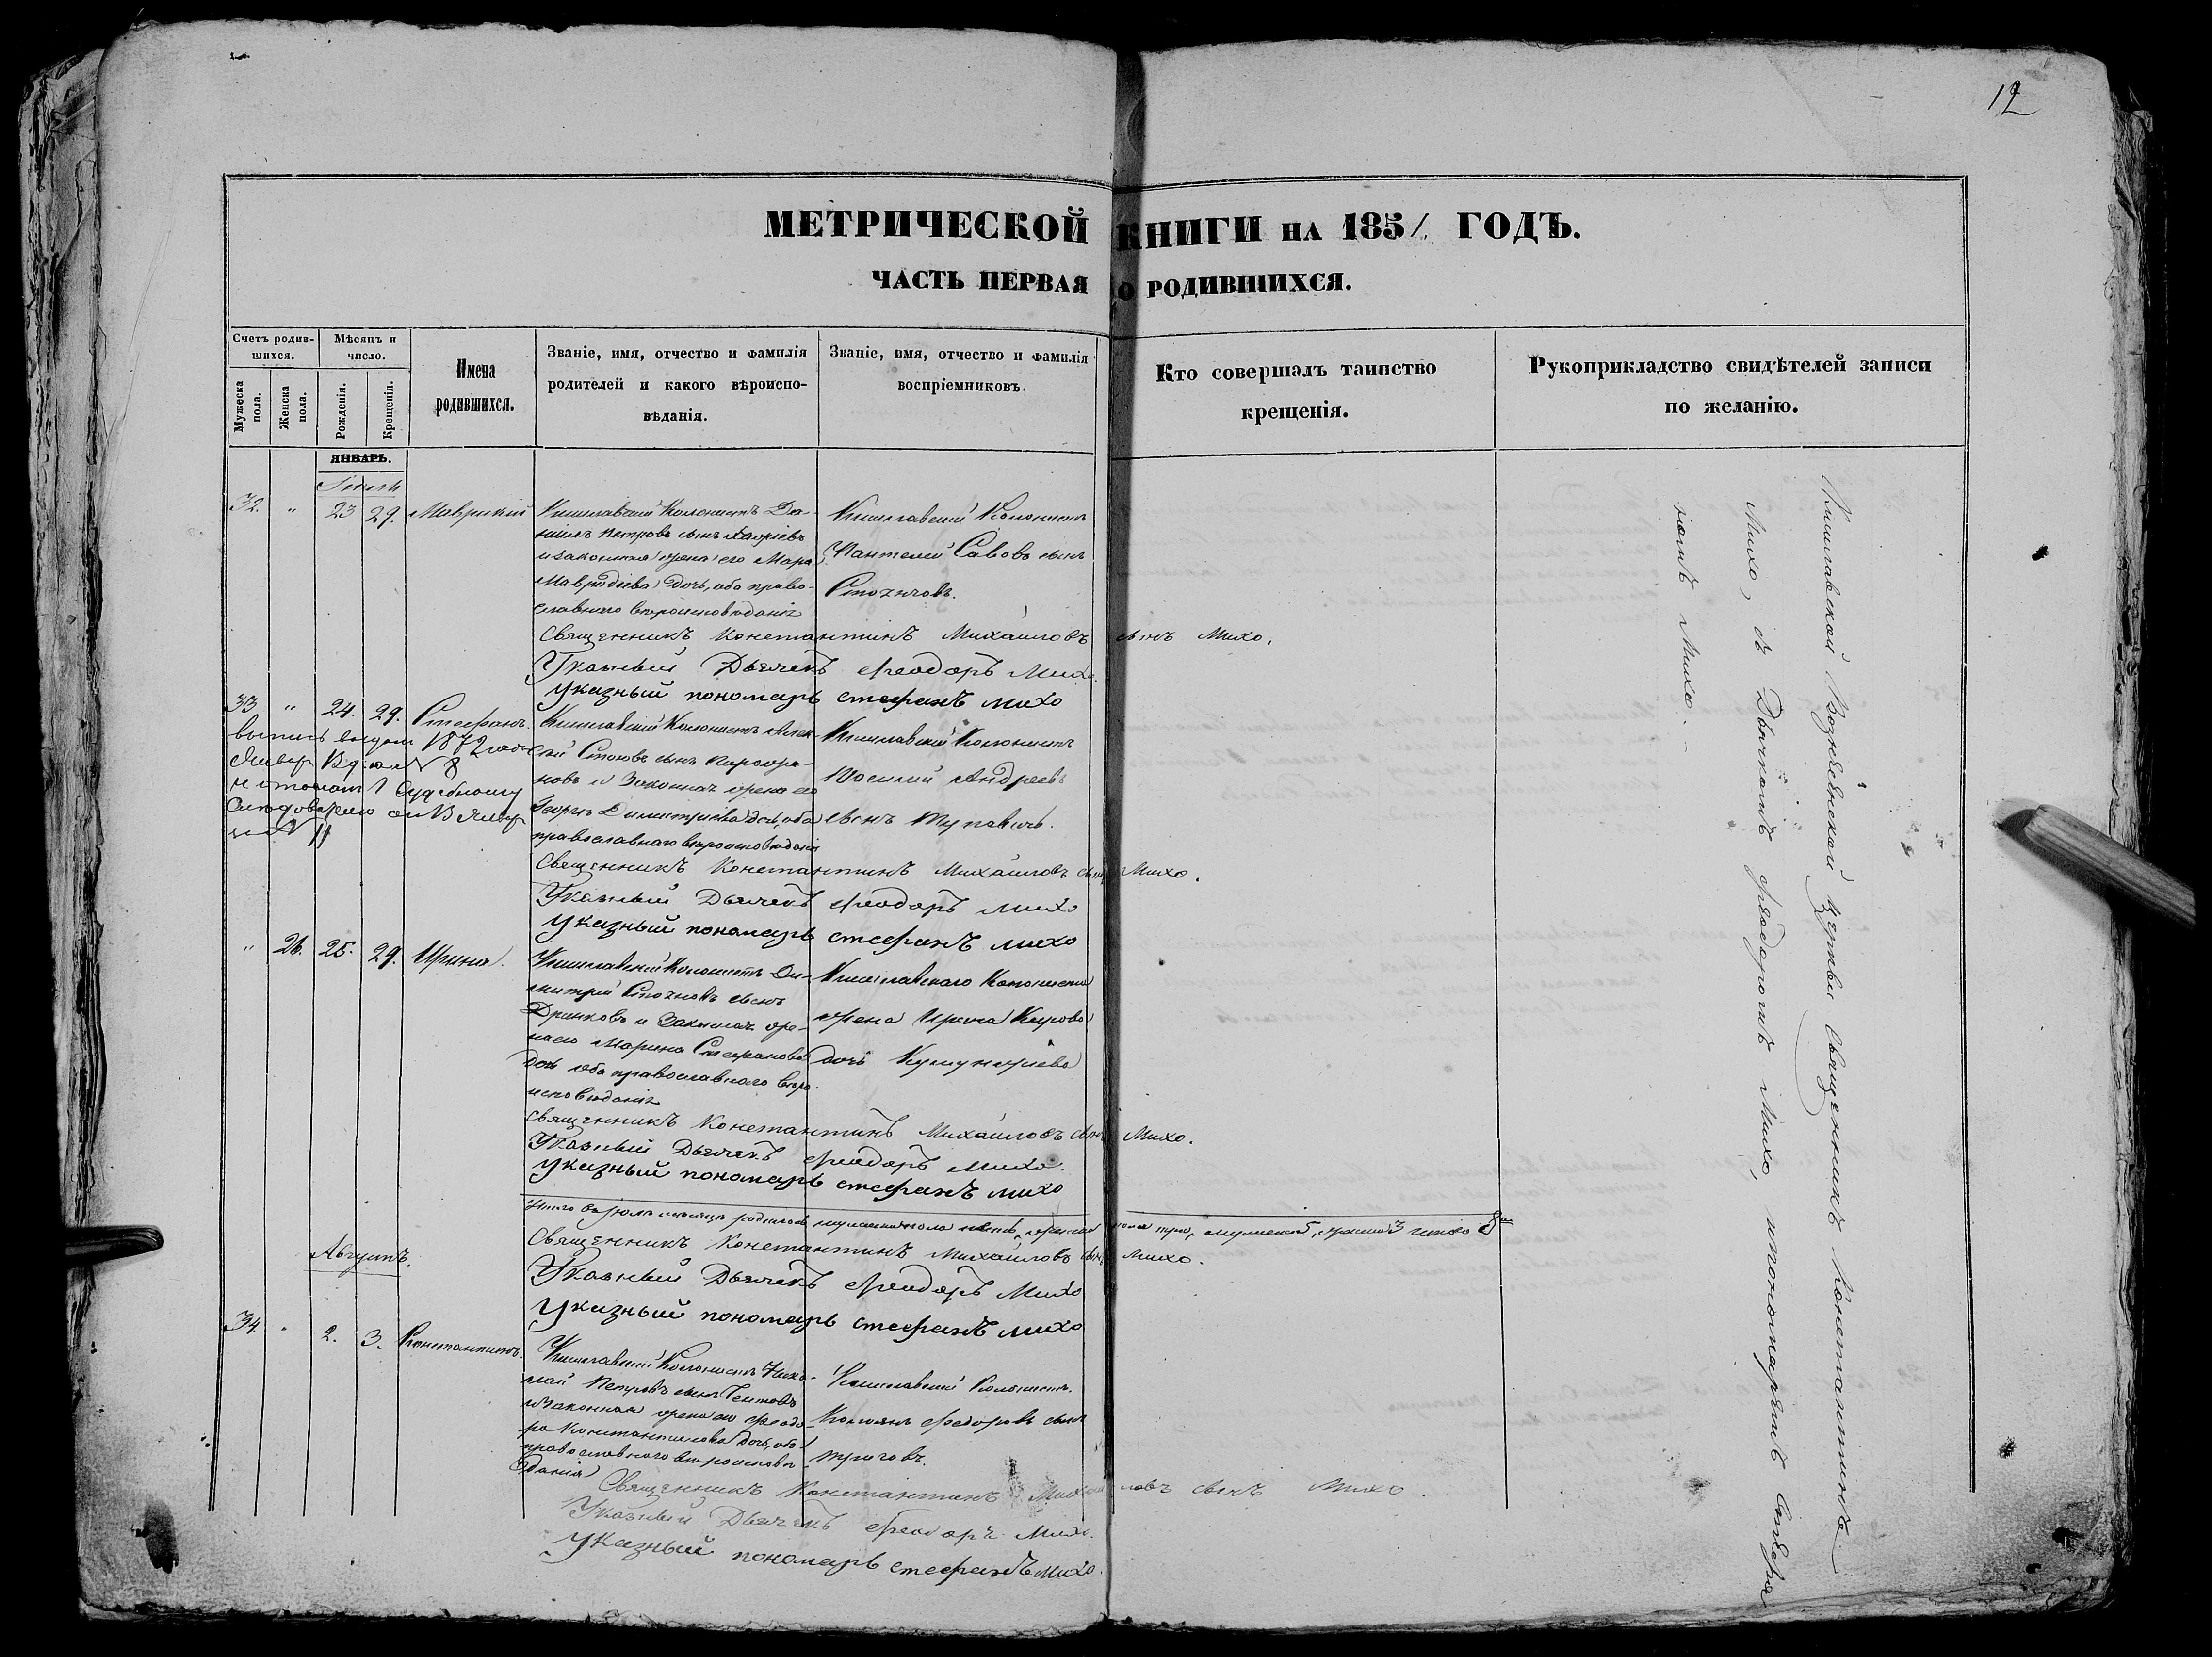 12
МЕТРИЧЕСКОЙ КНИГИ НА 1851 ГОДЪ.
ЧАСТЬ ПЕРВАЯ О РОДИВШИХСЯ.
Счетъ родившихся.
Мужеска пола.
Женска пола.
Мѣсяцъ и число.
Рожденія.
Крещенія.
Имена родившихся.
Званіе, имя, отчество и фамилія
родителей и какого вѣроиспо-
вѣданія.
Званіе, имя, отчество и фамилія
воспріемниковъ.
Кто совершалъ таинство
крещенія.
Рукоприкладство свидѣтелей записи
по желанію.
ЯНВАРЬ.
Іюль
32. " 23 29. Маврикий
Кишлавский Колонистъ Да-
ниилъ Петровъ сынъ
и законная жена его Мара
Мавродіева дочь, оба право-
славнаго вероисповѣданія
Кишлавский Колонистъ
Пантелей Савовъ сынъ
Стояновъ.
Священникъ Константинъ Михайловъ сынъ Михо.
Указный Дьячекъ Феодоръ Михо.
Указный пономарь Стефанъ Михо
33 " 24. 29. Стефанъ.
1872 года
Январ № 8
Судебному
Следователю
№ 11
Кишлавский Колонистъ Алек-
сѣй Стоювъ сынъ
новъ и Законная жена его
Георги Димитріева дочь, оба
православнаго вероисповѣданія
Кишлавский Колонистъ
Василий Андреевъ
сынъ
Священникъ Константинъ Михайловъ сынъ Михо.
Указный Дьячекъ Феодоръ Михо
Указный пономарь Стефанъ Михо
" 26. 25. 29. Ирина.
Кишлавский Колонистъ Ди-
митрий Стояновъ сынъ
Дринковъ и Законная же-
на его Марина Стефанова
дочь оба православнаго веро-
исповѣданія
Кишлавскаго Колониста
жена Ирина Кирова
дочь
Священникъ Константинъ Михайловъ сынъ Михо.
Указный Дьячекъ Феодоръ Михо.
Указный пономарь Стефанъ Михо
Итого въ Іюлѣ месяцѣ родилось мужеска пола пять, женска пола три, мужеска 5, женска 3 итого 8
Священникъ Константинъ Михайловъ сынъ Михо.
Указный Дьячекъ Феодоръ Михо
Указный пономарь Стефанъ Михо
Августъ.
34. " 2. 3. Константинъ.
Кишлавский Колонистъ Нико-
лай Петровъ сынъ
и законная жена его Феодо-
ра Константинова дочь, оба
православнаго вероисповѣ-
данія
Кишлавский Колонистъ
Федоровъ сынъ
Священникъ Константинъ Михайловъ сынъ Михо.
Указный Дьячекъ Феодоръ Михо.
Указный пономарь Стефанъ Михо.
Кишлавской Вознесенской церкви Священникъ Константинъ
Михо, съ Дьячкомъ Феодоромъ Михо, и пономаремъ Стефа-
номъ Михо.